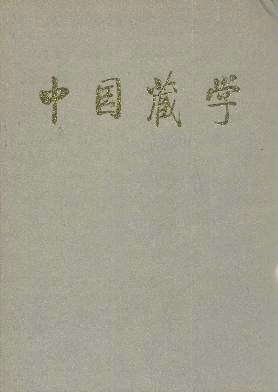 中国藏学